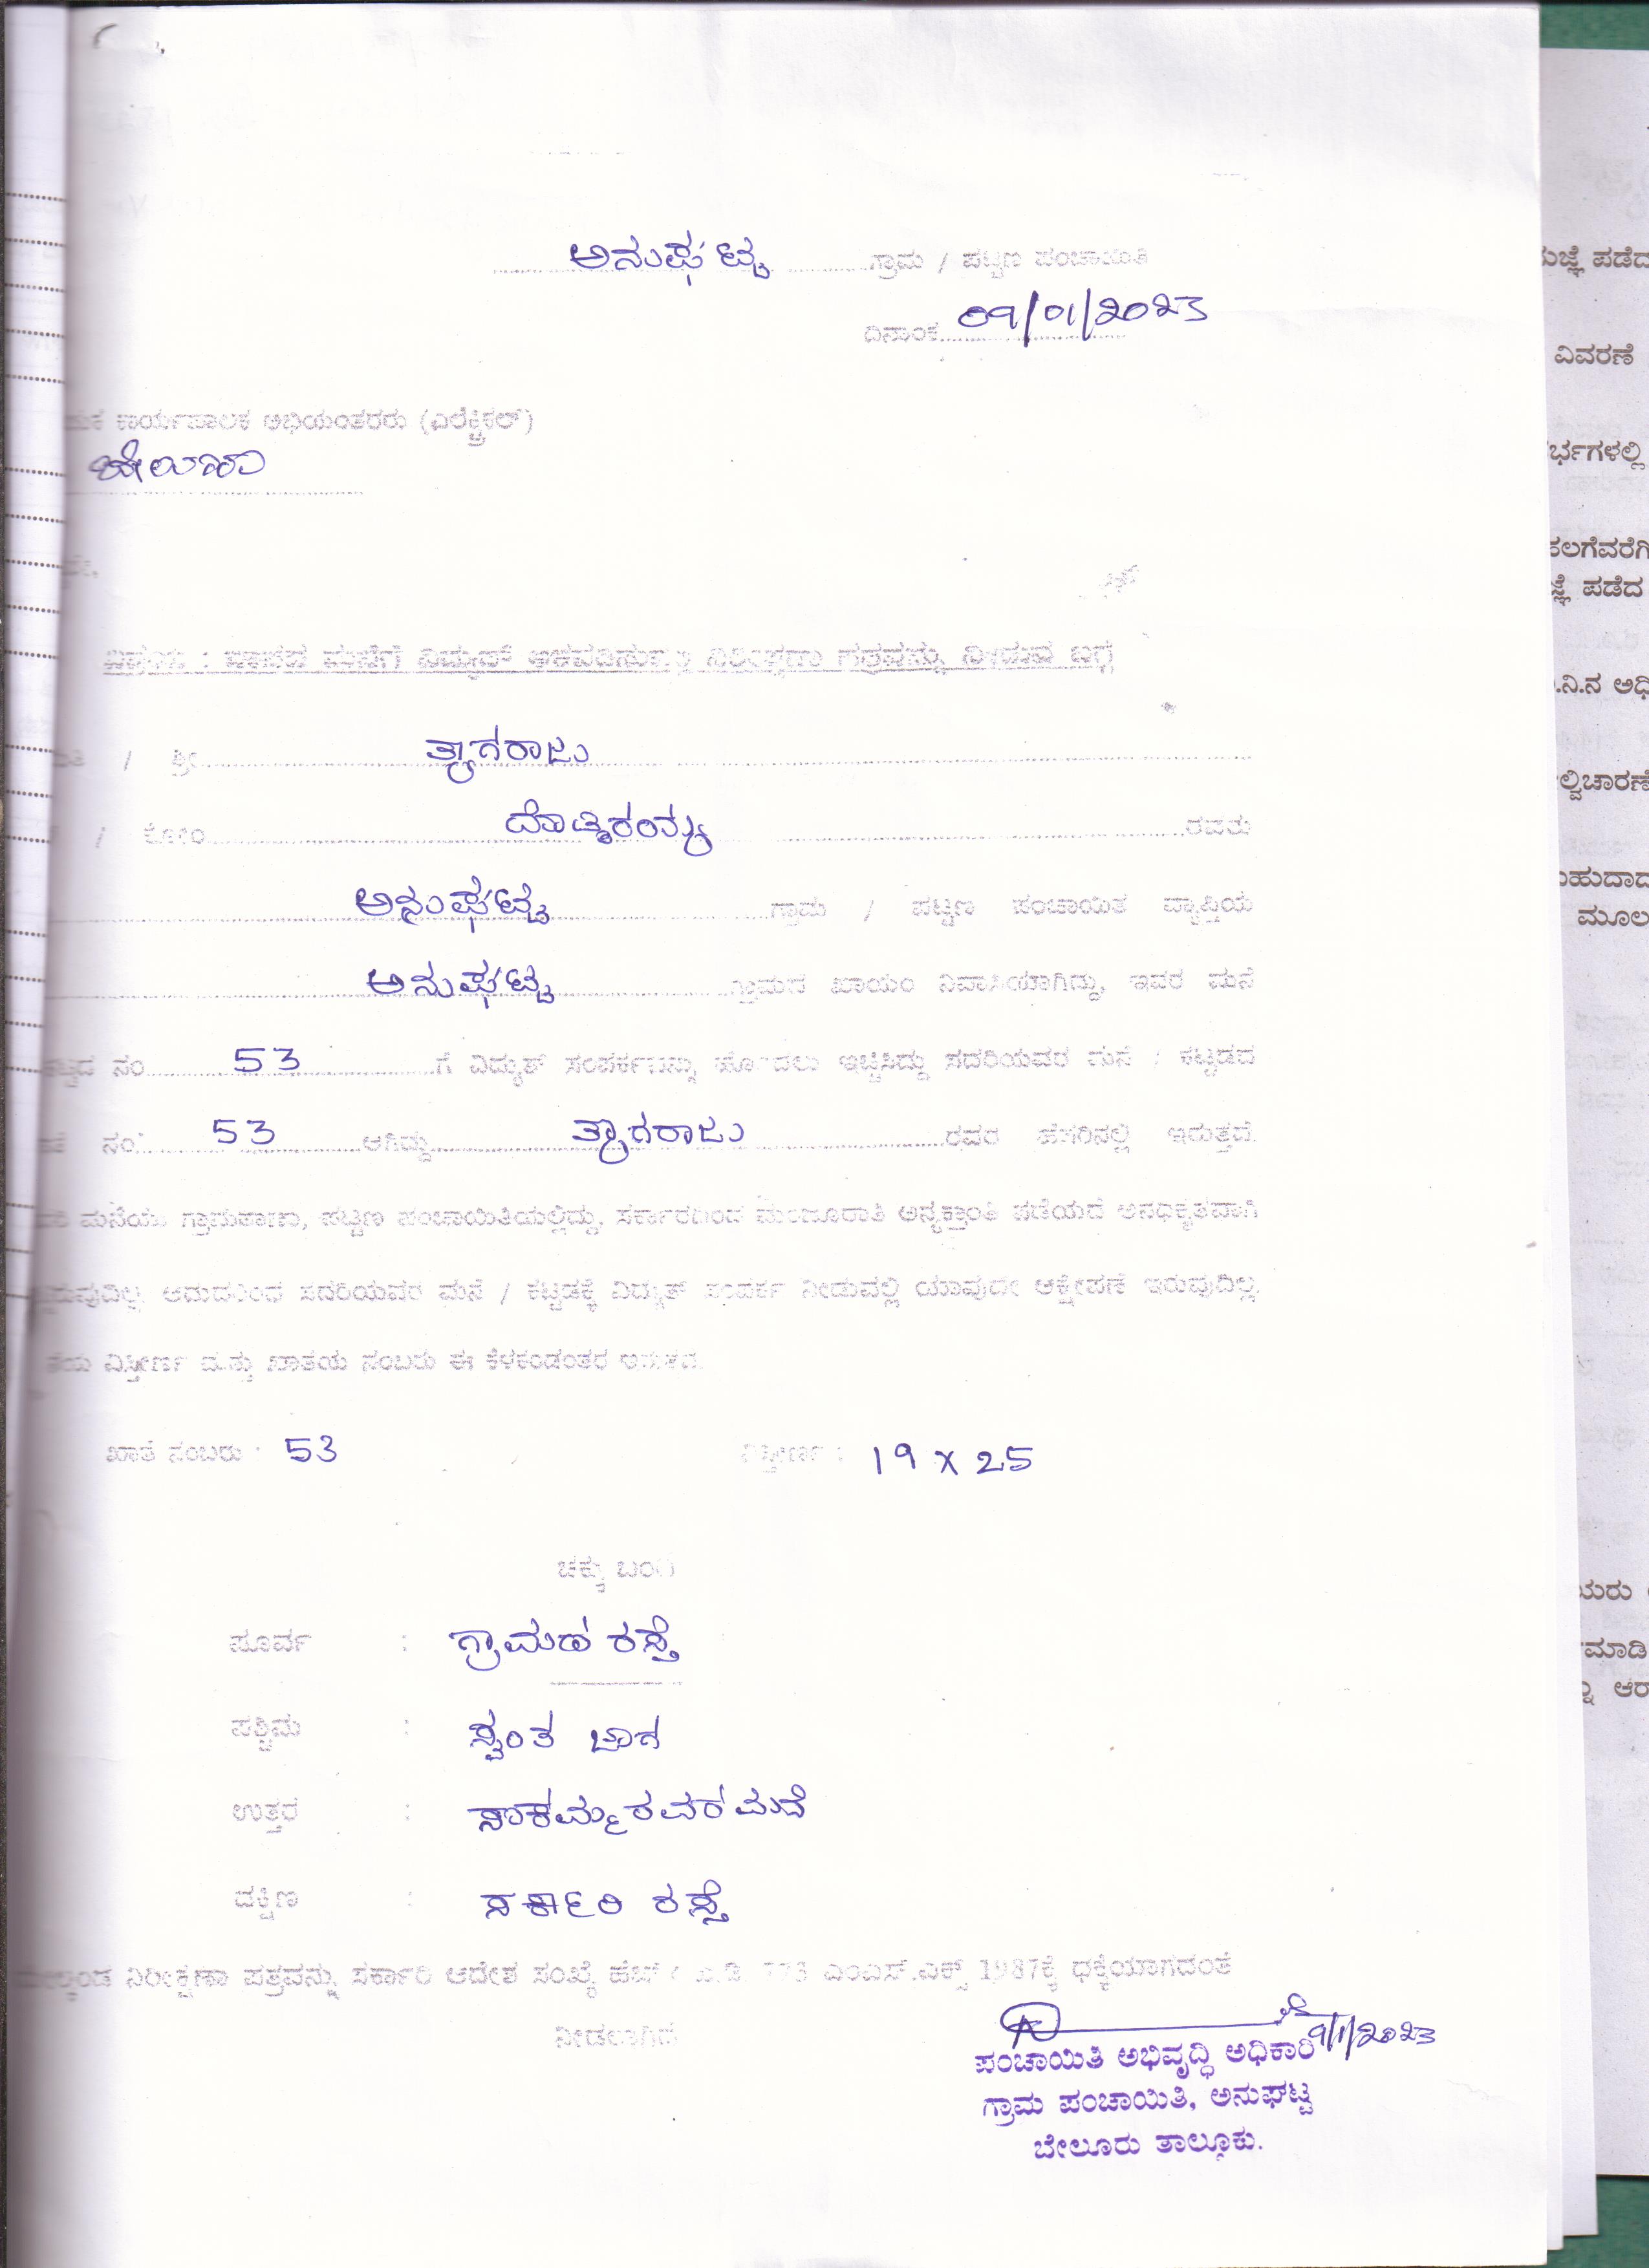 ಅನುಘಟ್ಟ ಗ್ರಾಮ / ಪಟ್ಟಣ ಪಂಚಾಯಿತಿ
ದಿನಾಂಕ 09/01/2023
ಕಾರ್ಯಪಾಲಕ ಅಭಿಯಂತರರು (ಎಲೆಕ್ಟ್ರಿಕಲ್)
ಬೇಲೂರು
ನಿರೀಕ್ಷಣಾ ಪತ್ರವನ್ನು ನೀಡುವ ಬಗ್ಗೆ
/ ಶ್ರೀ ತ್ಯಾಗರಾಜು
/ ಕೋಂ ರವರು
ಅನುಘಟ್ಟ ಗ್ರಾಮ / ಪಟ್ಟಣ ಪಂಚಾಯಿತಿ ವ್ಯಾಪ್ತಿಯ
ಅನುಘಟ್ಟ ಗ್ರಾಮದ ಖಾಯಂ ನಿವಾಸಿಯಾಗಿದ್ದು, ಇವರ ಮನೆ
ನಂ 53 ಗೆ ವಿದ್ಯುತ್ ಸಂಪರ್ಕವನ್ನು ಹೊಂದಲು ಇಚ್ಚಿಸಿದ್ದು ಸದರಿಯವರ ಮನೆ / ಕಟ್ಟಡದ
ನಂ 53 ಆಗಿದ್ದು ತ್ಯಾಗರಾಜು ರವರ ಹೆಸರಿನಲ್ಲಿ ಇರುತ್ತದೆ.
ಮನೆಯು ಗ್ರಾಮಠಾಣಾ, ಪಟ್ಟಣ ಪಂಚಾಯಿತಿಯಲ್ಲಿದ್ದು, ಸರ್ಕಾರದಿಂದ ಪಡೆಯದೆ ಅನಧಿಕೃತವಾಗಿ
ಆದುದರಿಂದ ಸದರಿಯವರ ಮನೆ / ಕಟ್ಟಡಕ್ಕೆ ವಿದ್ಯುತ್ ಸಂಪರ್ಕ ನೀಡುವಲ್ಲಿ ಯಾವುದೇ ಆಕ್ಷೇಪಣೆ ಇರುವುದಿಲ್ಲ.
ವಿಸ್ತೀರ್ಣ ಮತ್ತು ಖಾತೆಯ ನಂಬರು ಈ ಕೆಳಕಂಡಂತೆ ಇರುತ್ತದೆ.
ಖಾತೆ ನಂಬರು : 53 ವಿಸ್ತೀರ್ಣ : 19 x 25
ಚಕ್ಕು ಬಂದಿ
ಪೂರ್ವ : ಗ್ರಾಮದ ರಸ್ತೆ
ಪಶ್ಚಿಮ : ಸ್ವಂತ ಜಾಗ
ಉತ್ತರ : ಸಾಕಮ್ಮ ರವರ ಮನೆ
ದಕ್ಷಿಣ : ಸರ್ಕಾರಿ ರಸ್ತೆ
ನಿರೀಕ್ಷಣಾ ಪತ್ರವನ್ನು ಸರ್ಕಾರಿ ಆದೇಶ ಸಂಖ್ಯೆ 773 ಎಂಎಸ್.ಎಕ್ಸ್ 1987ಕ್ಕೆ ಧಕ್ಕೆಯಾಗದಂತೆ
ನೀಡಲಾಗಿದೆ
9/1/2023
ಪಂಚಾಯಿತಿ ಅಭಿವೃದ್ಧಿ ಅಧಿಕಾರಿ
ಗ್ರಾಮ ಪಂಚಾಯಿತಿ, ಅನುಘಟ್ಟ
ಬೇಲೂರು ತಾಲ್ಲೂಕು.
ಪಡೆದ
ವಿವರಣೆ
ಪಡೆದ
ಮೂಲ